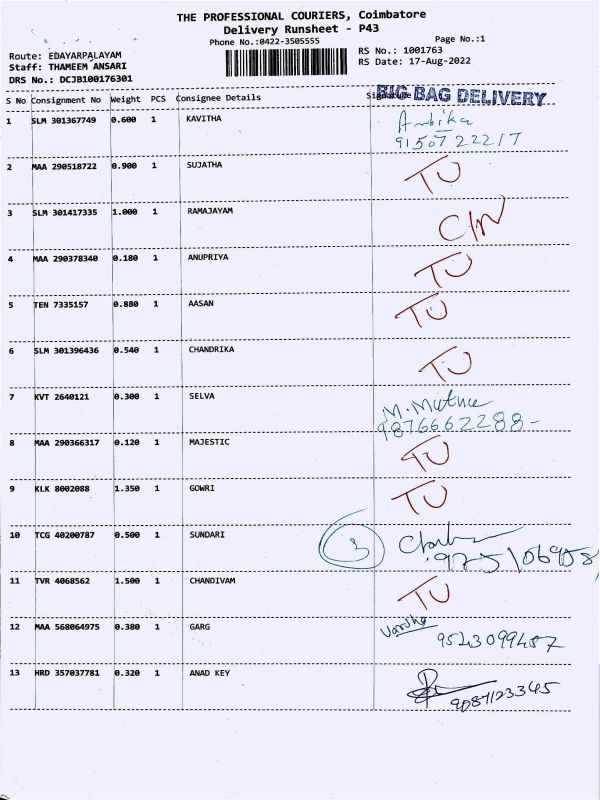 THE PROFESSIONAL COURIERS, Coimbatore
Delivery Runsheet - P43
Phone No.:0422-3505555
Page No.:1
Route: EDAYARPALAYAM
Staff: THAMEEM ANSARI
DRS No.: DCJB100176301
RS No.: 1001763
RS Date: 17-Aug-2022
BIG BAG DELIVERY
S No Consignment No Weight PCS Consignee Details Signature
1 SLM 301367749 0.600 1 KAVITHA Ambika
9150722217
2 MAA 290518722 0.900 1 SUJATHA TU
3 SLM 301417335 1.000 1 RAMAJAYAM C/N
4 MAA 290378340 0.180 1 ANUPRIYA TU
5 TEN 7335157 0.880 1 AASAN TU
6 SLM 301396436 0.540 1 CHANDRIKA TU
7 KVT 2640121 0.300 1 SELVA M. Muthu
9876662288-
8 MAA 290366317 0.120 1 MAJESTIC TU
9 KLK 8002088 1.350 1 GOWRI TU
10 TCG 40200787 0.500 1 SUNDARI 3
11 TVR 4068562 1.500 1 CHANDIVAM TU
12 MAA 568064975 0.380 1 GARG Varsha
9543099487
13 HRD 357037781 0.320 1 ANAD KEY
9087123345